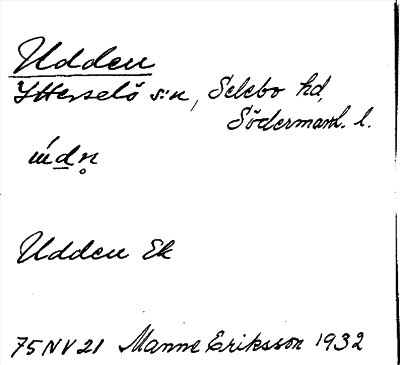 Udden
Ytterselö s:n, Selebo hd,
Södermanl. l.
Udden Ek
75NV21 Manne Eriksson 1932